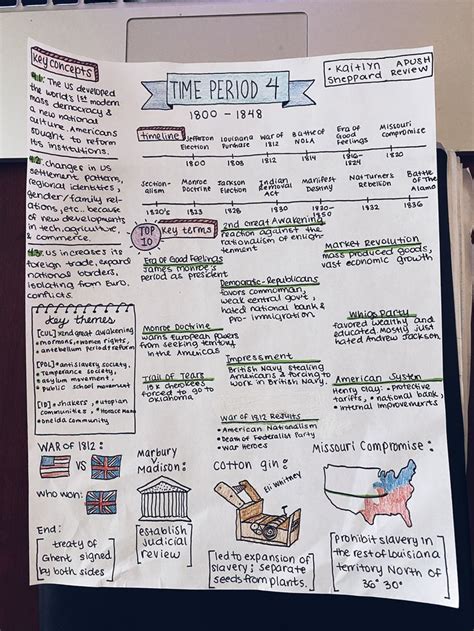 Key concepts
4.1: The US developed
the world's 1st modern
mass democracy &
a new national
culture. Americans
sought to reform
its institutions.
4.2: changes in US
settlement pattern,
regional identities,
gender/family rel-
ations, etc.. because
of new developments
in tech, agriculture,
& commerce.
4.3: US increases its
foreign trade, expand
national borders,
isolating from Euro.
conflicts.
key themes
[CUL] 2nd great awakening
• mormons, women rights,
• antebellum period & reform
[POL] slavery, society,
temperance society,
• asylum movement,
• public school movement
[ID] • shakers, • utopian
communities, • Horace Mann
• oneida community
TIME PERIOD 4
1800 - 1848
• Kaitlyn Sheppard
APUSH Review
timeline
Jefferson Election
Louisiana Purchase
War of 1812
Battle of NOLA
Era of Good Feelings
Missouri compromise
1800
1803
1812
1814
1816-1824
1820
Section-alism
Monroe Doctrine
Jackson Election
Indian Removal Act
Manifest Destiny
Nat Turner's Rebellion
Battle of The Alamo
1820's
1823
1828
1830
1830-1850
1832
1836
TOP 10
key terms
Era of Good Feelings
James Monroe's period
as president
Monroe Doctrine
warns european powers
from seeking territory
in the Americas
Trail of Tears
16k cherokees
forced to go to
oklahoma
2nd Great Awakening
reaction against the
rationalism of enligh-
tenment
Democratic-Republicans
favors commoman,
weak central gov't,
hated national bank &
pro-immigration
Impressment
British Navy stealing
Americans & forcing to
work in British Navy.
War of 1812 Results
• American Nationalism
• Death of Federalist Party
• War Heroes
Market Revolution
mass produced goods,
vast economic growth
Whigs Party
favored wealthy and
educated mostly just
hated Andrew Jackson
American System
Henry Clay: • protective
tariffs, • national bank,
• internal improvements
WAR OF 1812:
VS
who won:
End:
treaty of
Ghent signed
by both sides
Marbury
v
Madison:
establish
judicial
review
cotton gin:
Eli Whitney
led to expansion of
slavery; separate
seeds from plants.
Missouri Compromise:
prohibit slavery in
the rest of Louisiana
territory North of
36° 30°